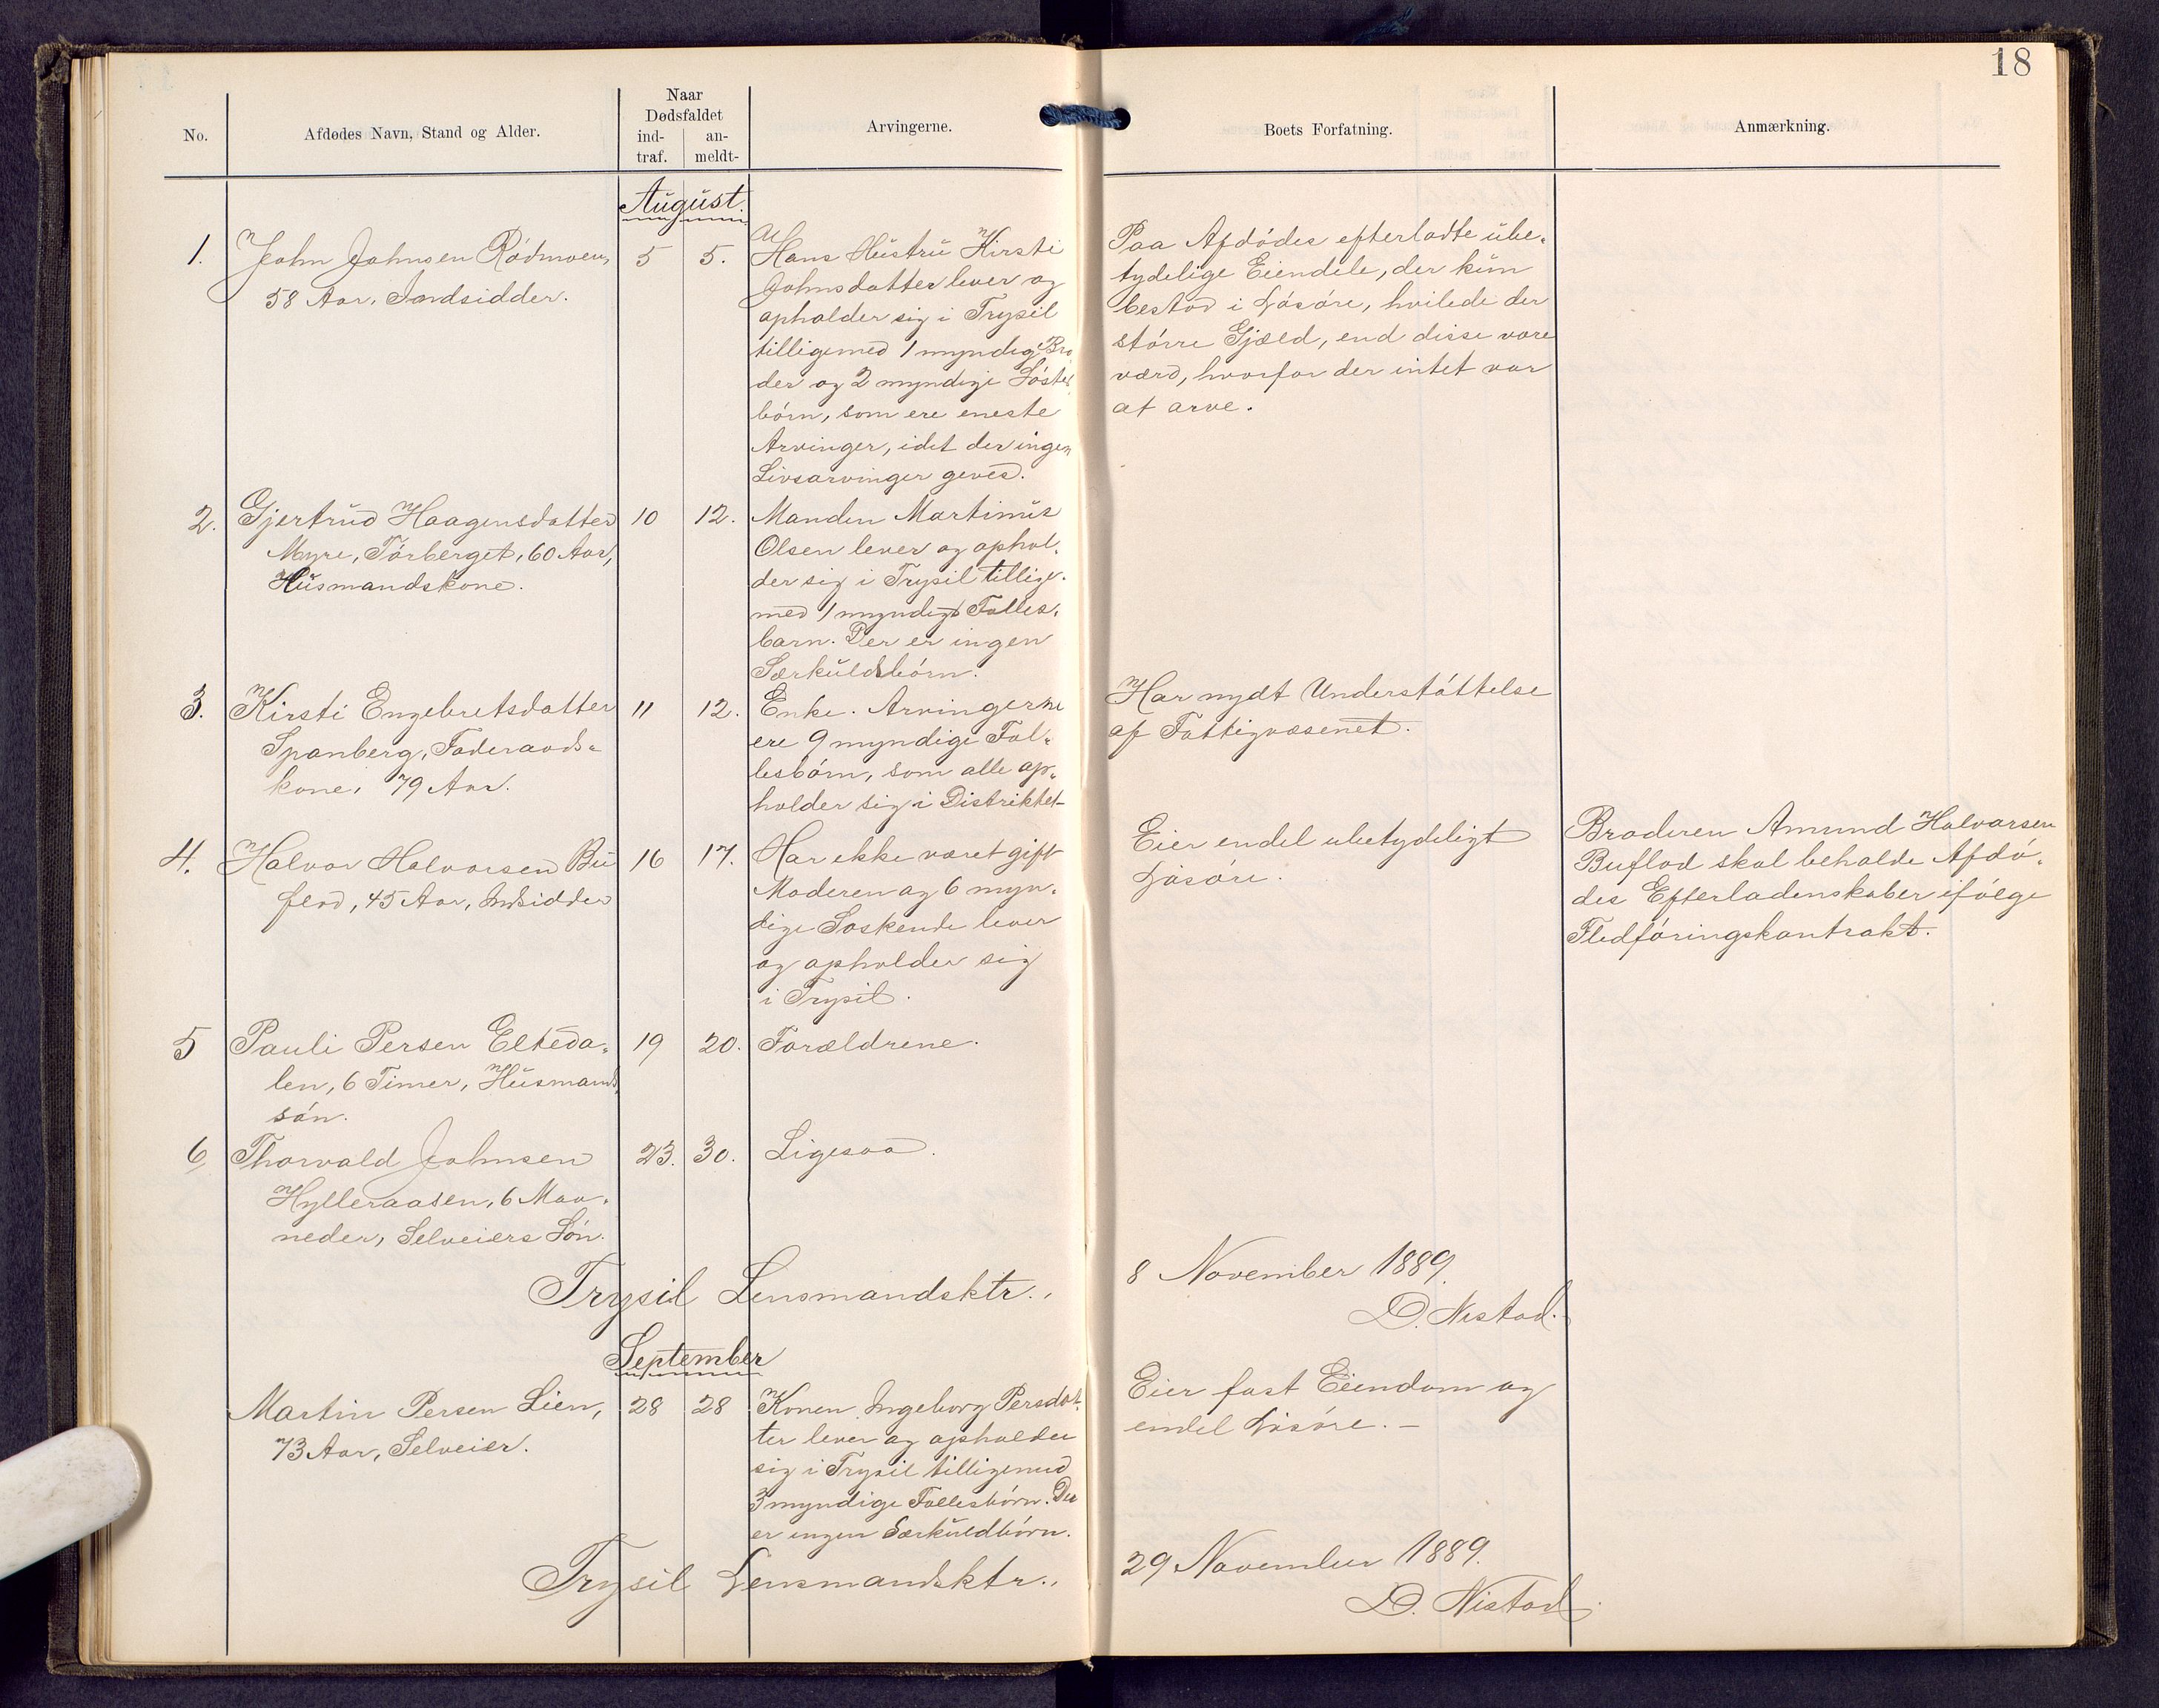 18
No.
Afdødes Navn, Stand og Alder.
Naar
Dødsfaldet
ind-
traf.
an-
meldt-
Arvingerne.
Boets Forfatning.
Anmærkning.
August.
1. John Johnsen Rödmoen, 5 5.
58 Aar, Indsidder.
Hans Hustru Kirsti
Johnsdatter lever og
opholder sig i Trysil
tilligemed 1 myndig Bro
der og 2 myndige Söster
börn, som ere eneste
Arvinger, idet der ingen
Livsarvinger geves.
Paa Afdödes efterladte ube-
tydelige Eiendele, der kun
bestod i Lösöre, hvilede der
större Gjæld, end disse vare
værd, hvorfor der intet var
at arve.
2. Gjertrud Haagensdatter 10 12.
Myre, Törberget, 60 Aar,
Husmandskone.
Manden Martinus
Olsen lever og ophol-
der sig i Trysil tillige-
med 1 myndigt Fælles-
barn. Der er ingen
Særkuldsbörn.
3. Kirsti Engebretsdatter 11 12.
Spanberg, Föderaads-
kone, 79 Aar.
Enke. Arvingerne
ere 9 myndige Fæl-
lesbörn, som alle op-
holder sig i Distriktet
Har nydt Understöttelse
af Fattigvæsenet.
4. Halvor Halvorsen Bu 16 17.
flod, 45 Aar, Indsidder
Har ikke været gift
Moderen og 6 myn-
dige Söskende lever
og opholder sig
i Trysil.
Eier endel ubetydeligt
Lösöre.
Broderen Amund Halvorsen
Buflod skal beholde Afdö-
des Efterladenskaber ifölge
Fledföringskontrakt.
5 Pauli Persen Elteda- 19 20.
len, 6 Timer, Husmands
sön.
Forældrene.
6 Thorvald Johnsen 23. 30.
Hylleraasen, 6 Maa-
neder, Selveiers Sön.
Ligesaa.
Trysil Lensmandsktr., 8 November 1889.
D. Nistad.
September
Martin Persen Lien, 28 28
73 Aar, Selveier.
Konen Ingeborg Persdat-
ter lever og opholder
sig i Trysil tilligemed
3 myndige Fællesbörn. Der
er ingen Særkuldbörn.
Eier fast Eiendom og
endel Lösöre. –
Trysil Lensmandsktr., 29 November 1889.
D. Nistad.